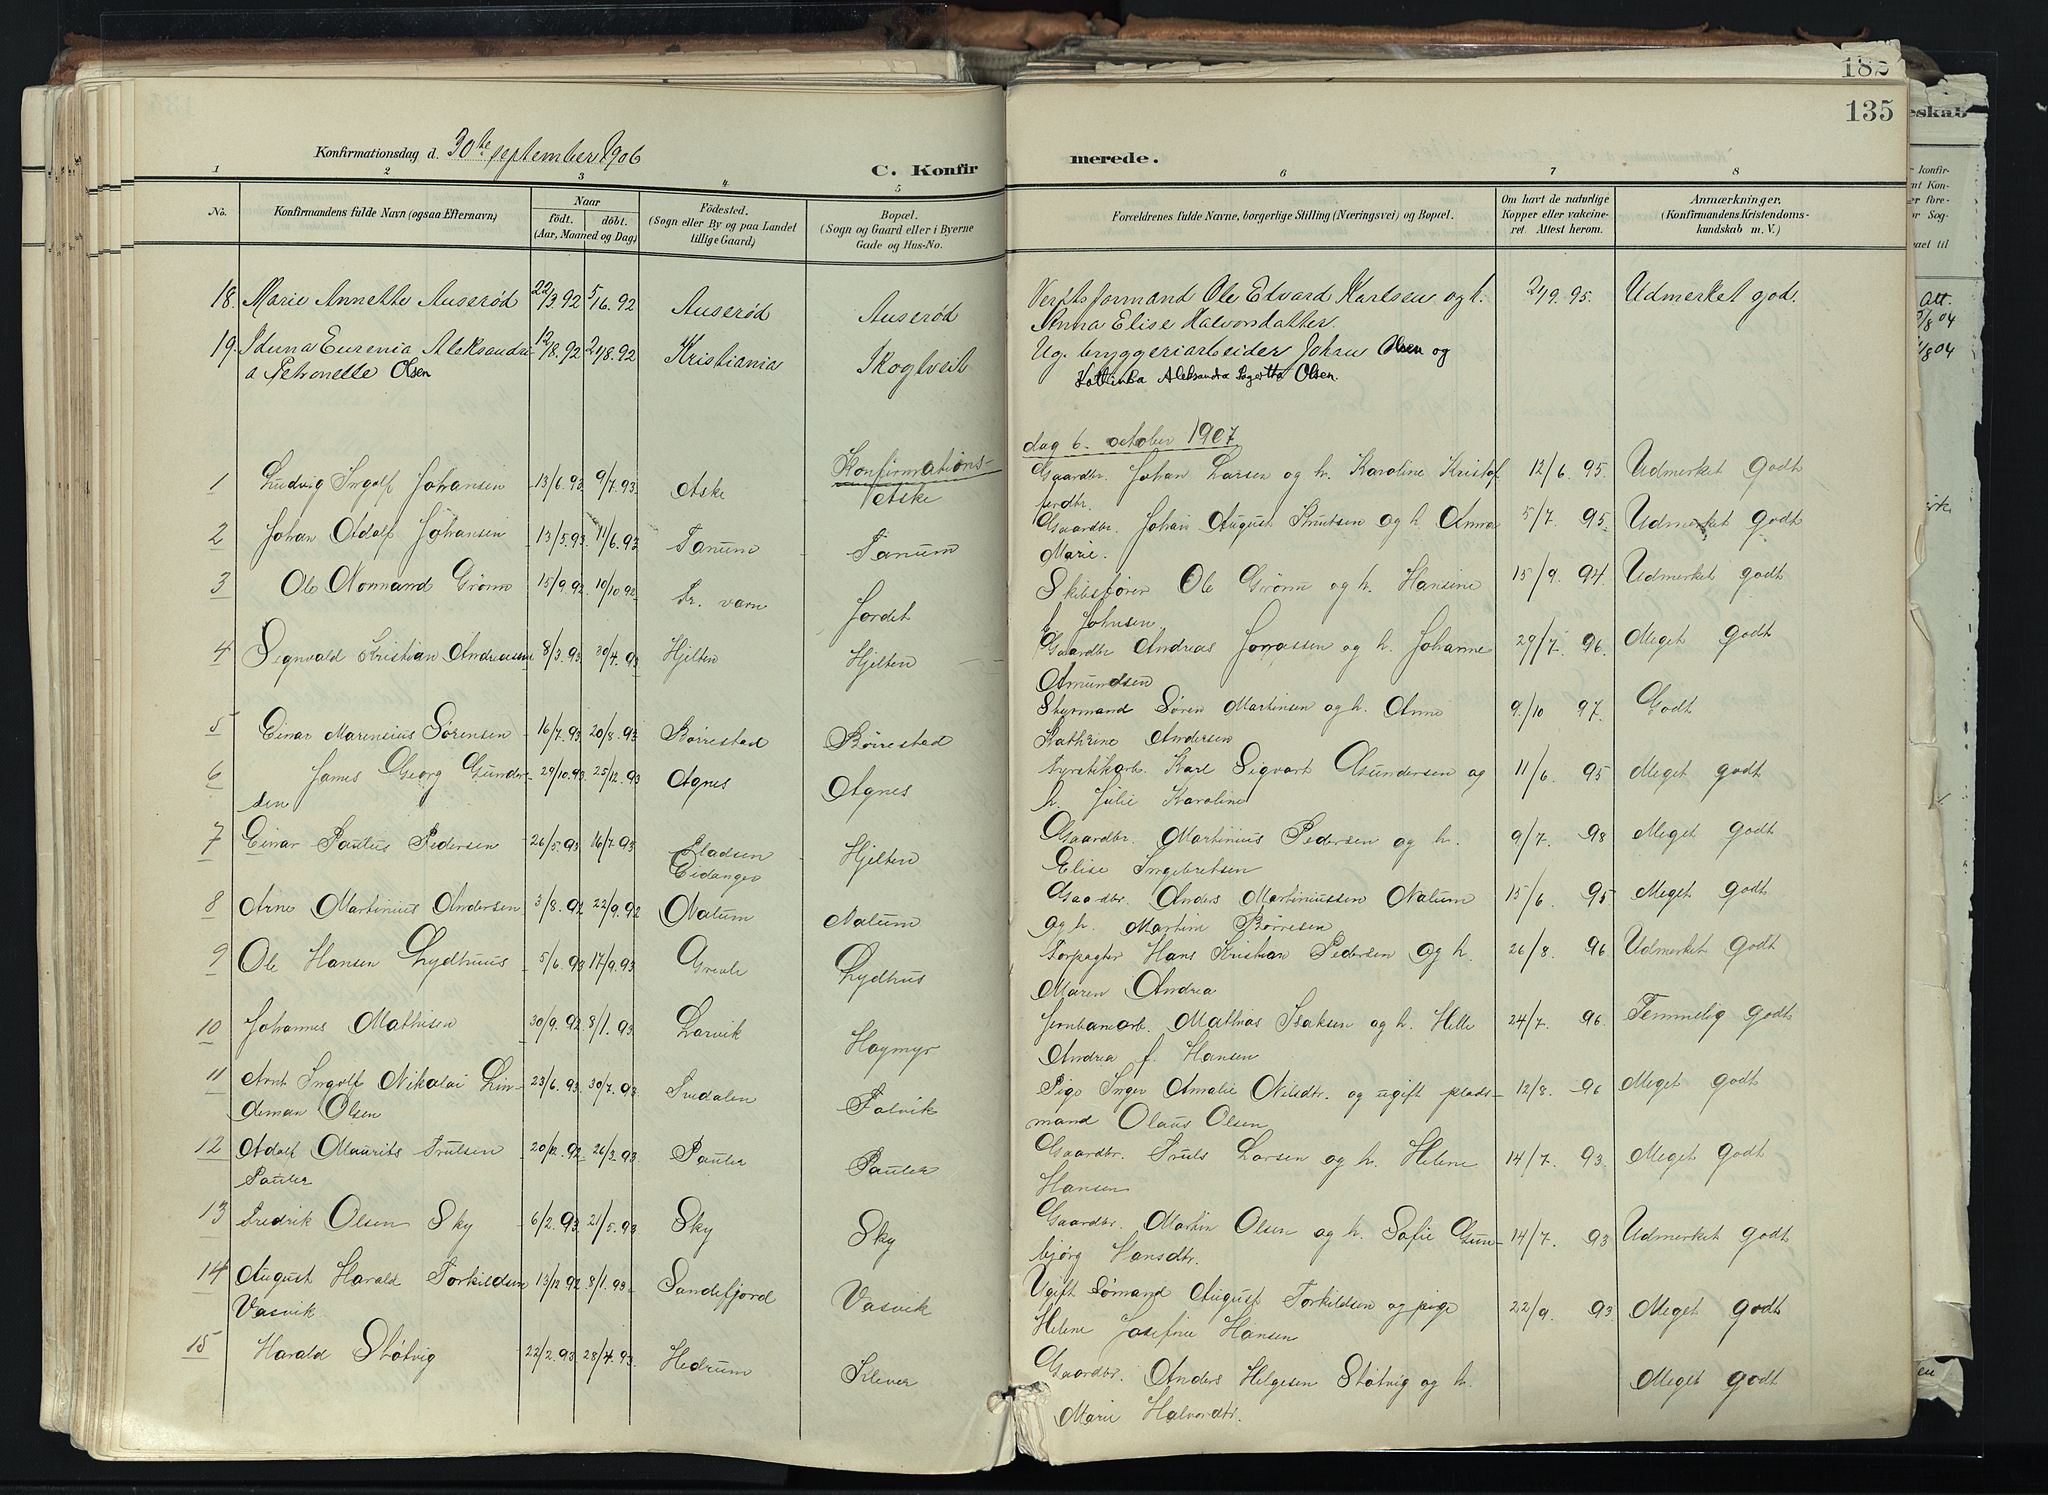 182
135
eskab
Konfirmationsdag d. 30te september 1906
C. Konfir
merede.
1 2 3 4 5 6 7 8
No.
Konfirmandens fulde Navn (ogsaa Efternavn)
Naar
födt. döbt.
(Aar, Maaned og Dag)
Födested.
(Sogn eller By og paa Landet
tillige Gaard)
Bopæl.
(Sogn og Gaard eller i Byerne
Gade og Hus-No.
Forældrenes fulde Navne, borgerlige Stilling (Næringsvei) og Bopæl.
Om havt de naturlige
Kopper eller vakcine-
ret. Attest herom.
Anmærkninger.
(Konfirmandens Kristendoms-
kundskab m. V.)
18. Marie Annette Auserød 22/3.92 5/16.92 Auserød Auserød Verftsformand Ole Edvard Karlsen og h. 21/9. 95. Udmerket god.
Anna Elise Halvorsdatter.
19. Iduna Eugenia Aleksandr- 12/8.92 21/8.92 Kristiania Skogtveit Ug. bryggeriarbeider Johan Olsen og
a Petronelle Olsen Aleksandra Olsen.
Konfirmations-
dag 6. october 1907
1 Ludvig Ingolf Johansen 13/6.93 9/7.93 Aske Aske Gaardbr. Johan Larsen og h. Karoline Kristof 12/6. 95. Udmerket godt
ferdtr.
2 Johan Adolf Johansen 13/5.93 11/6.93 Tanum Tanum Gaardbr. Johan August Knutsen og h. Anna 5/7. 95. Udmerket godt
Marie.
3 Ole Normand Grønn 15/9.92 10/10.92 Fr. værn Jordet Skibsfører Ole Grønn og h. Hansine 15/9. 94. Udmerket godt
f. Johnsen
4 Signvald Kristian Andreassen 8/3.93 30/4.93 Hjelten Hjelten Gaardbr. Andreas Jonassen og h. Johanne 29/7. 96. Meget godt
Amundsen
5 Einar Marensius Sørensen 16/7.93 20/8.93 Børrestad Børrestad Styrmand Søren Martinsen og h. Anne 9/10 97. Godt
Kathrine Andersen
6 James Georg Gunder- 29/10.93. 25/12.93 Agnes Agnes Fyrstikarb. Karl Sigvart Gundersen og 11/6. 95 Meget godt
sen h. Julie Karoline
7 Einar Paulus Pedersen 26/5.93 16/7.93 Eidanger Hjelten Gaardbr. Martinius Pedersen og h. 9/7. 98 Meget godt
Elise Ingebretsen
8 Arne Martinius Andersen 3/8.92 22/9.92 Nalum Nalum Gaardbr. Anders Martiniussen Nalum 15/6. 95 Meget godt
og h. Martine Børresen
9 Ole Hansen Lydhuus 5/6.93 17/9.93 Lydhus Forpagter Hans Kristian Pedersen og h. 26/8. 96 Udmerket godt
Maren Andrea
10 Johannes Mathisen 30/9.92 8/1.93 Larvik Høymyr Jernbanearb. Mathias Isaksen og h. Helle 24/7. 96. Temmelig godt
Andrea f. Hansen
11 Arnt Ingolf Nikolai Lin- 23/6.93. 30/7.93. Tredalen Falvik Pige Inger Amalie Nilsdtr. og ugift plads- 12/8. 96 Meget godt
deman Olsen mand Olaus Olsen
12 Adolf Maurits Trulsen 20/12.92. 26/3.93. Pauler Pauler Gaardbr. Truls Larsen og h. Helene 14/7. 93. Meget godt
Pauler Hansen
13 Fredrik Olsen Sky 6/2.93 21/5.93 Sky Sky Gaardbr. Martin Olsen og h. Sofie Gun- 14/7. 93 Udmerket godt
bjørg Hansdtr.
14 August Harald Torkildsen 13/12.92 8/1.93. Sandefjord Vasvik Ugift sømand August Torkildsen og pige 22/9. 93. Meget godt
Vasvik Helene Josefine Hansen
15 Harald Støtvig 22/2.93. 28/4.93. Hedrum Klever Gaardbr. Anders Helgesen Støtvig og h. Meget godt
Marie Halvordtr.